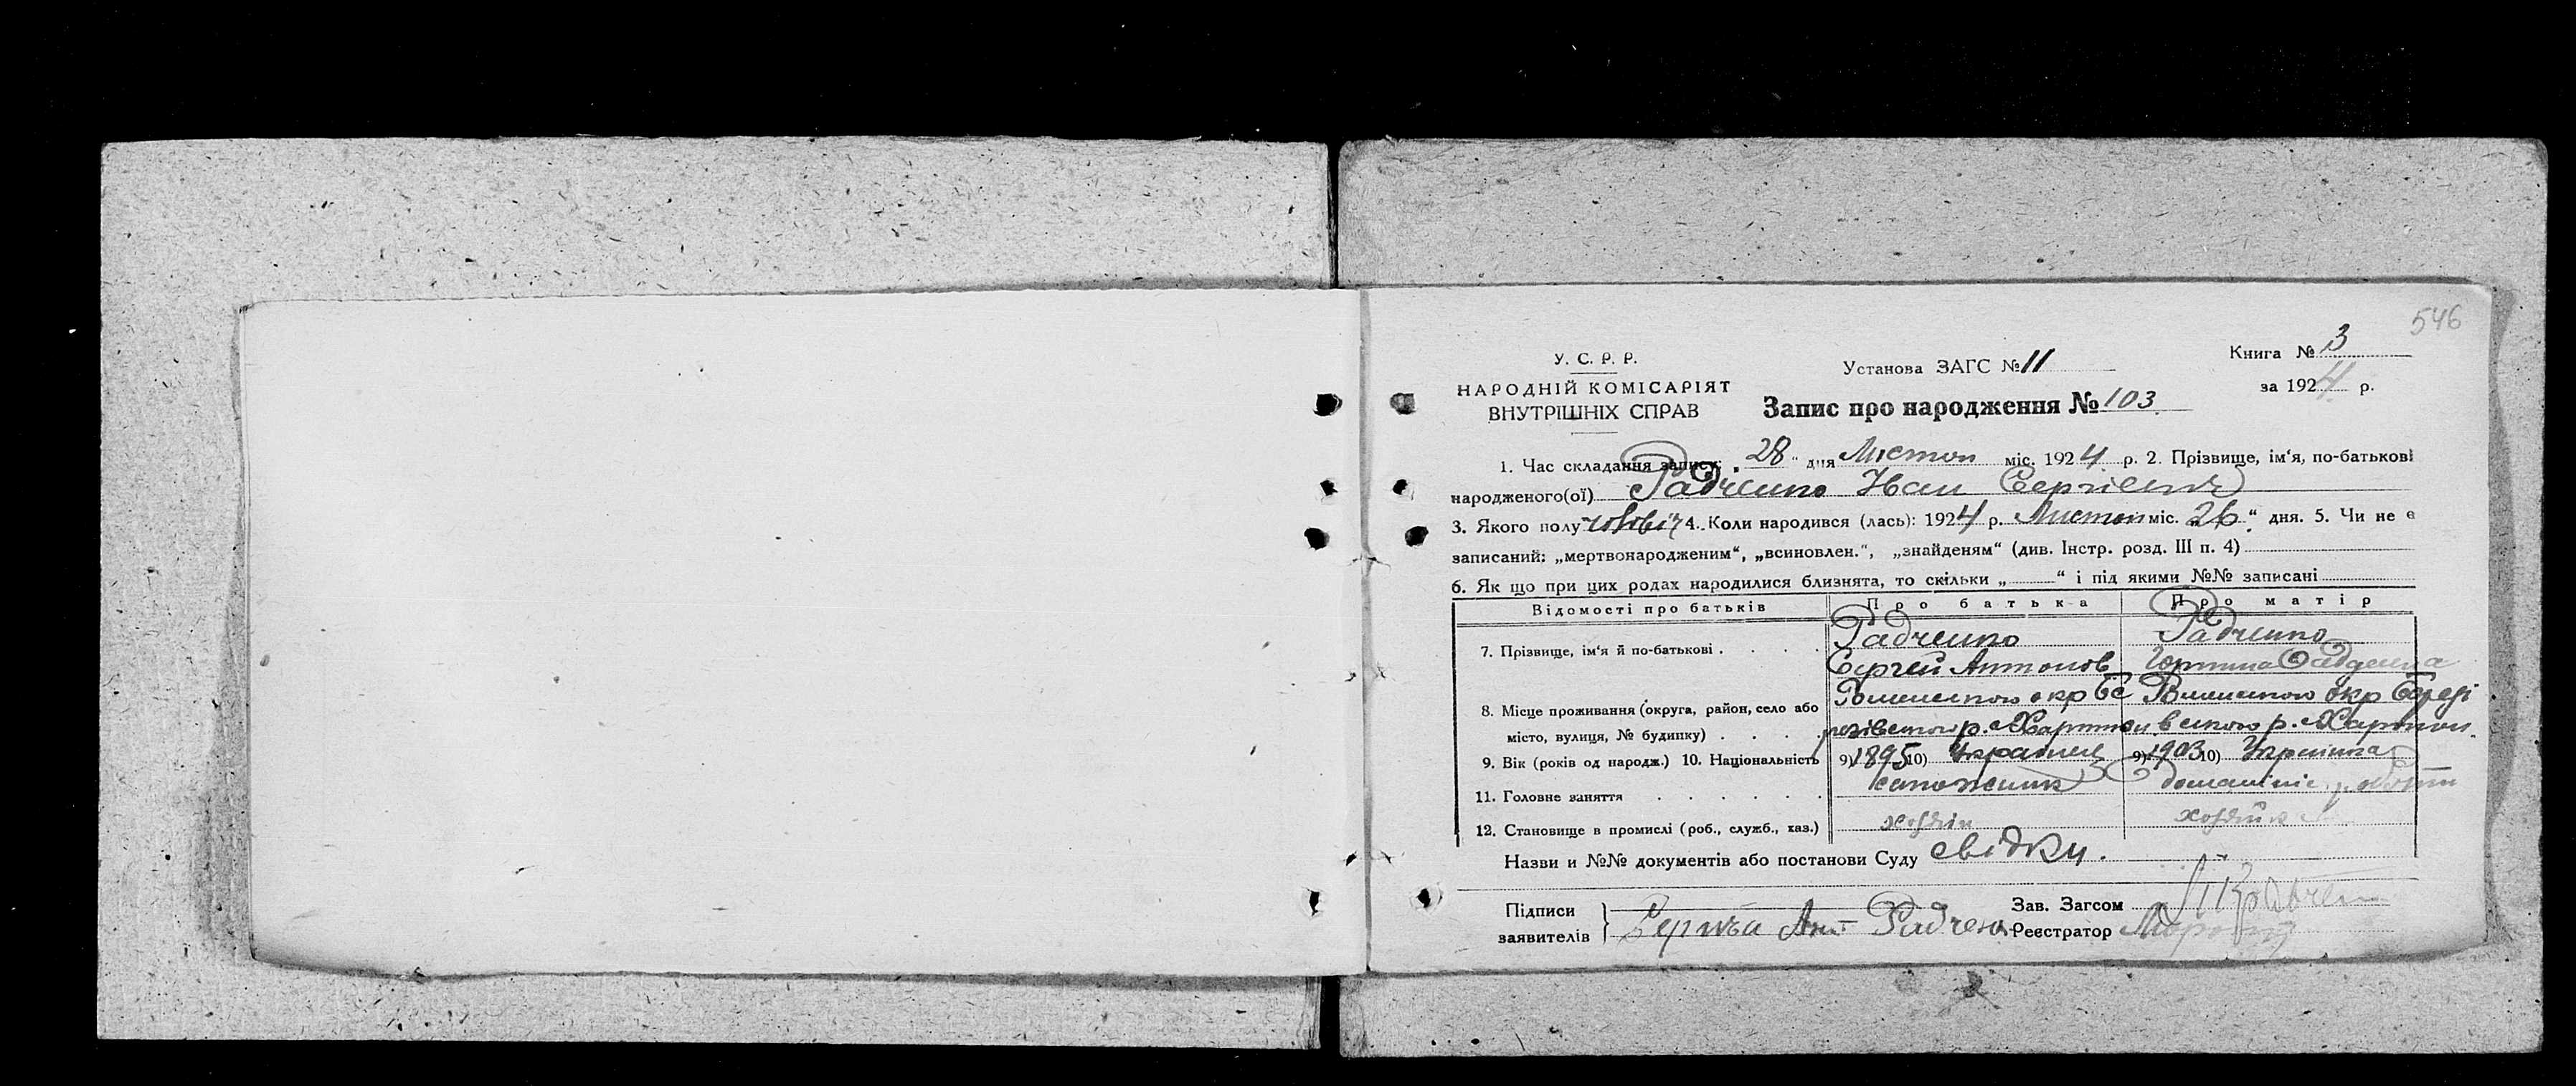 546
У. С. Р. Р.
НАРОДНІЙ КОМІСАРІЯТ
ВНУТРІШНІХ СПРАВ
Установа ЗАГС № 11
Книга № 3
за 1924 р.
Запис про народження № 103
1. Час складання запису: „28“ дня Листоп міс. 1924 р. 2. Прізвище, ім‘я, по-батькові
народженого(ої) Радченко Іван Сергіевич
3. Якого полу чоловіч 4. Коли народився (лась): 1924 р. Листоп міс. 26“ дня. 5. Чи не є
записаний: „мертвонародженим“, „всиновлен.“, „знайденям“ (див. Інстр. розд. III п. 4)
6. Як що при цих родах народилися близнята, то скільки „ “ і під якими №№ записані
Відомості про батьків Про батька Про матір
7. Прізвище, ім‘я й по-батькові Радченко Радченко
Сергей Антонов
8. Місце проживання (округа, район, село або Роменского окр Бе Роменского окр Березі
місто, вулиця, № будинку) резівского р. вского р.
9. Вік (років од народж.) 10. Національність 9) 1895 10) Украінец 9) 1903 10) Украінка
11. Головне заняття сапожник домашніе работи
12. Становище в промислі (роб., служб., хаз.) хозяін
Назви и №№ документів або постанови Суду свідки.
Підписи
заявителів Ант Радченко
Зав. Загсом
Реєстратор